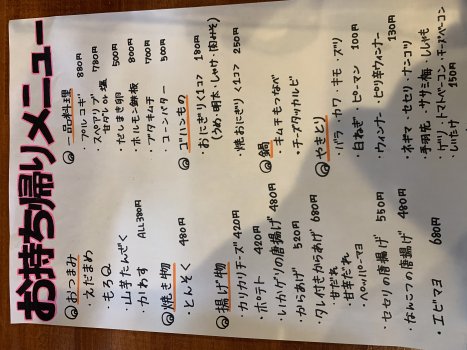 お持ち帰りメニュー
おつまみ
・えだまめ
・もろQ
・山芋たんざく
・かわす ALL380円
焼き物
・とんそく 480円
揚げ物
・カリカリチーズ 420円
・ポテト 420円
・いかゲソの唐揚げ 480円
・からあげ 520円
・タレ付きからあげ 680円
・甘だれ
・甘辛だれ
・ペッパーマヨ
・セセリの唐揚げ 550円
・なんこつの唐揚げ 480円
・エビマヨ 680円
一品料理
・プルコギ 880円
・スペアリブ 780円
甘ダレor塩
・だしまき卵 500円
・ホルモン鉄板 800円
・ブタキムチ 700円
・コーンバター 500円
ゴハンもの
・おにぎり<1コ> 180円
(うめ・明太・しゃけ・肉みそ)
・焼おにぎり<1コ> 250円
鍋
・キムチもつなべ
・チーズタッカルビ
やきとり
・バラ・カワ・キモ・ズリ
・白ねぎ・ピーマン 100円
・ウィンナー・ピリ辛ウィンナー 130円
・ネギマ・セセリ・ナンコツ
・手羽先・ササミ梅・ししゃも
・ゲソ・トマトベーコン・チーズベーコン
・しいたけ 150円